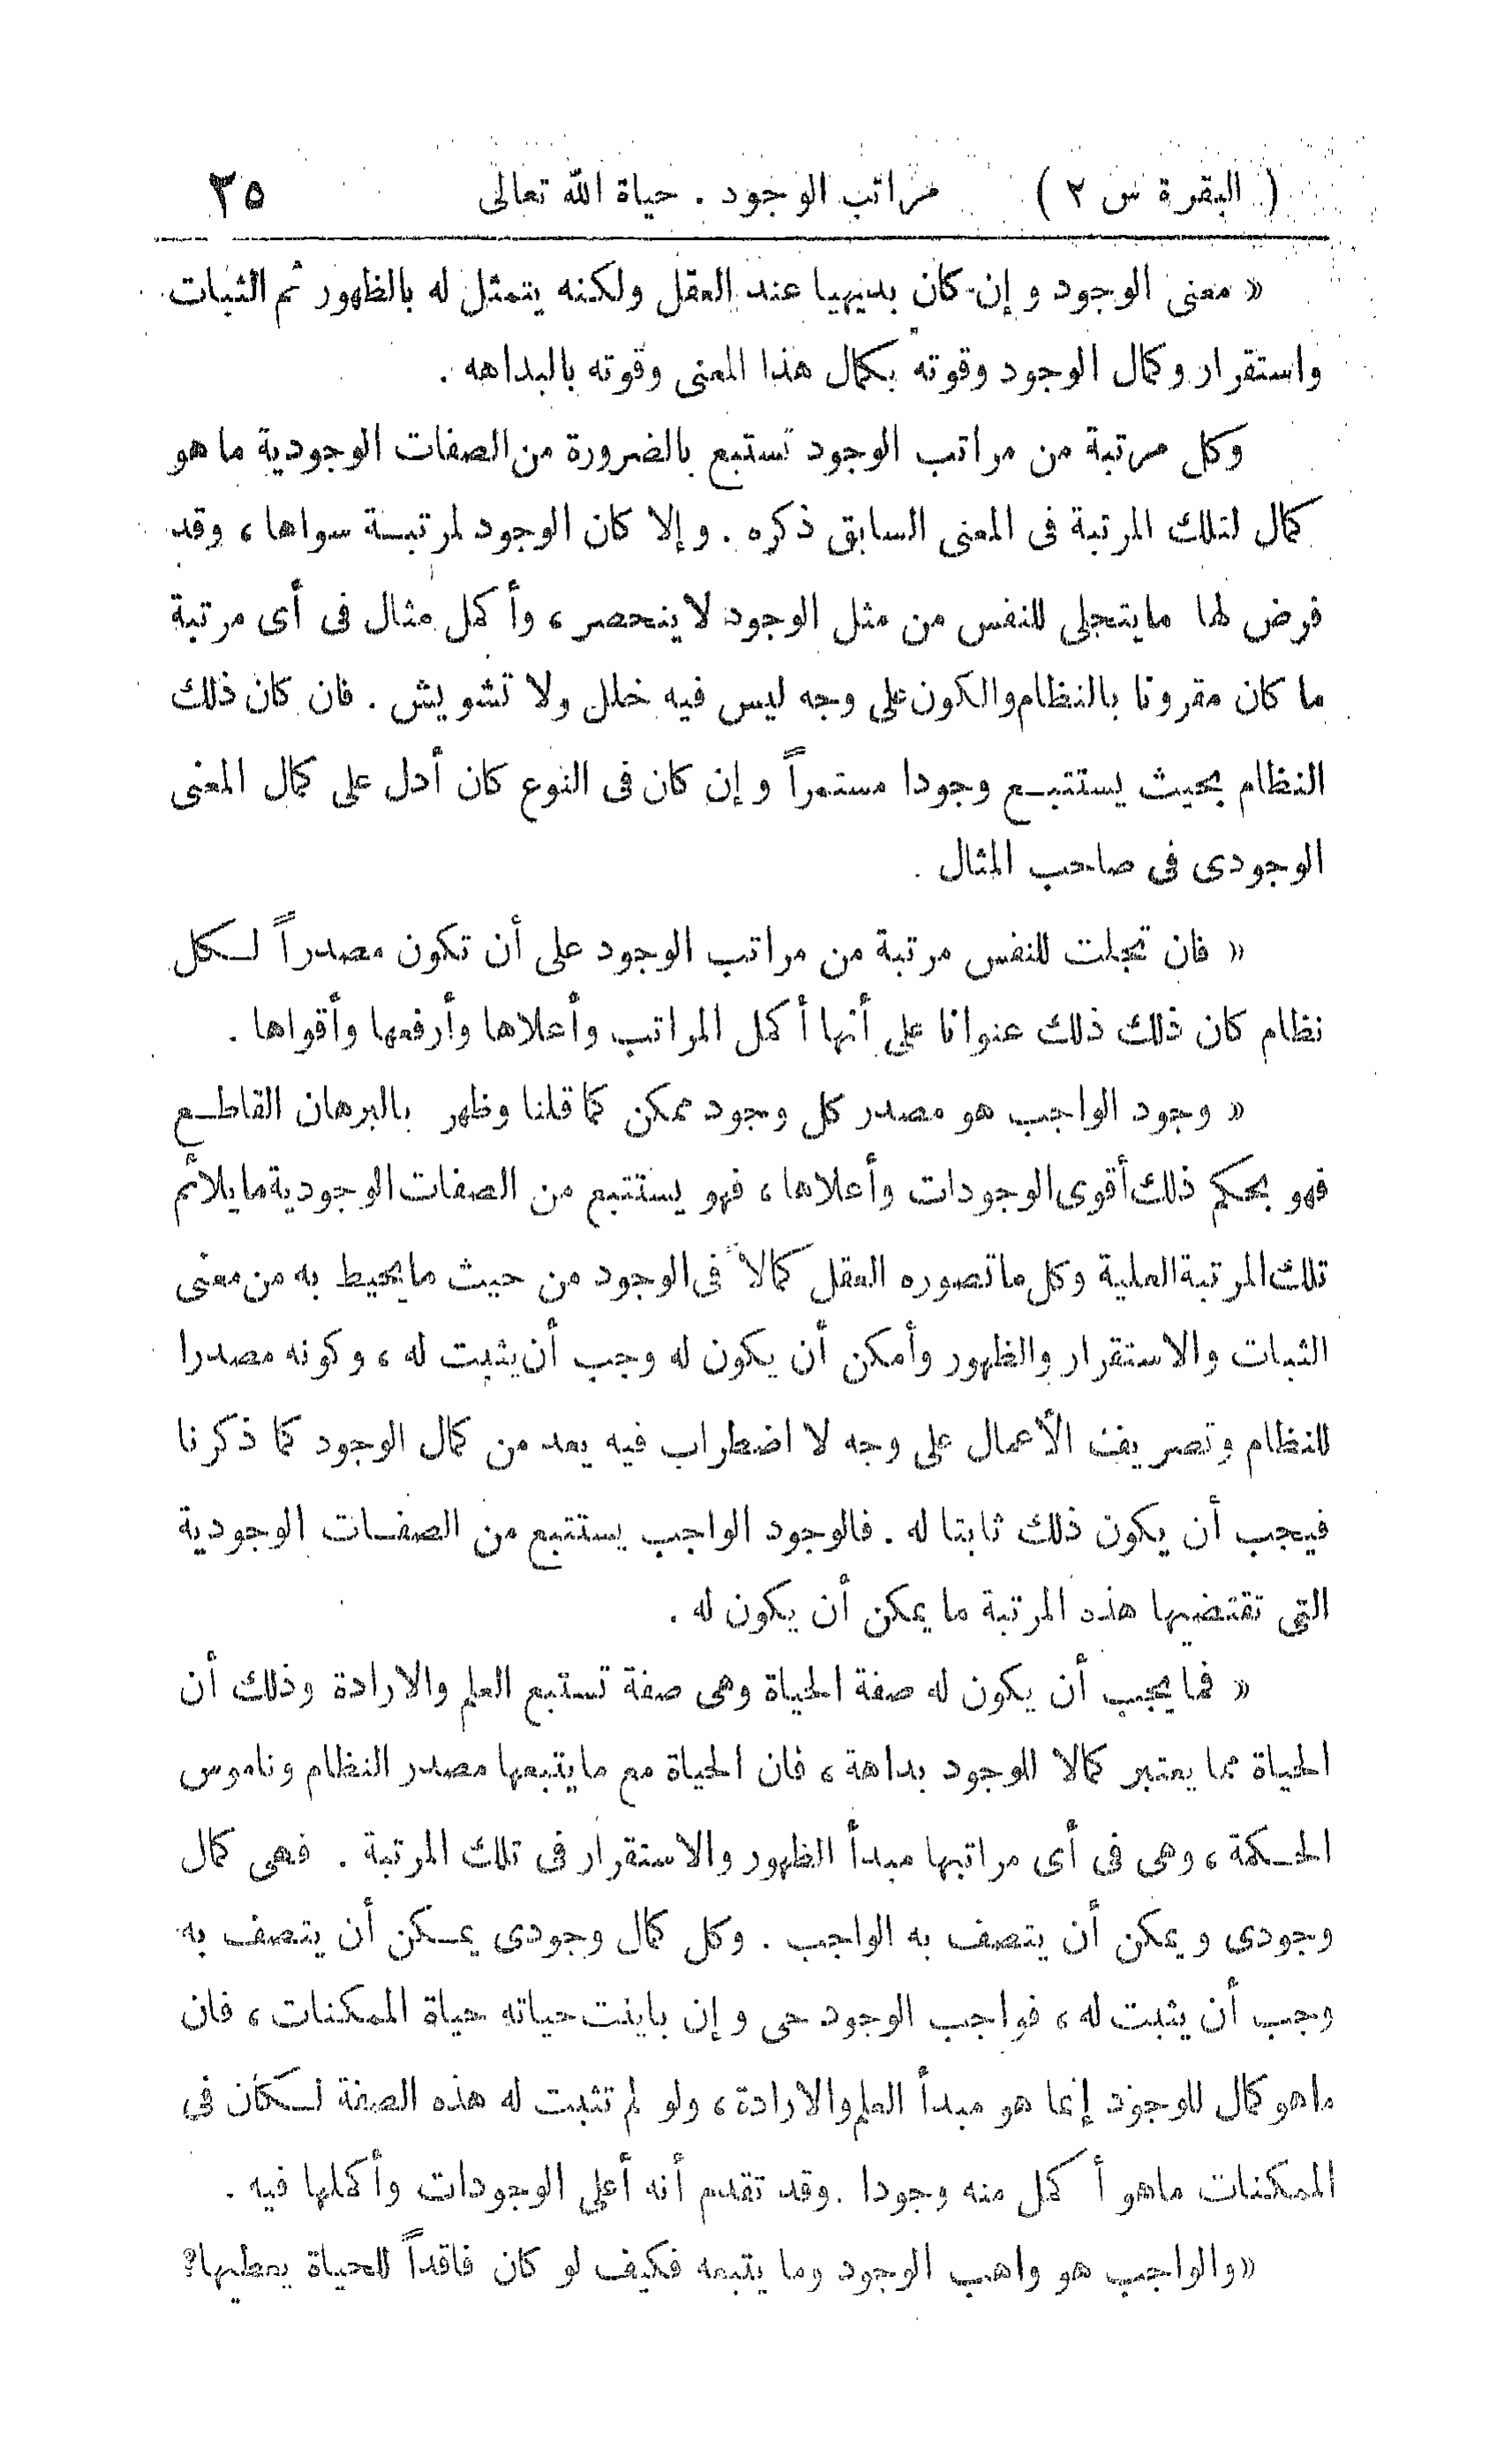 ( البقرة س ٢ ) مراتب الوجود . حياة الله تعالى ٣٥
« معنى الوجود وإن كان بديهيا عند العقل ولكنه يتمثل له بالظهور ثم الثبات
واستقرار وكمال الوجود وقوته بكمال هذا المعنى وقوته بالبداهه .
وكل مرتبة من مراتب الوجود تستتبع بالضرورة من الصفات الوجودية ما هو
كمال لتلك المرتبة فى المعنى السابق ذكره . وإلا كان الوجود لمرتبة سواها ، وقد
فرض لها مايتجلى للنفس من مثل الوجود لاينحصر ، وأكمل مثال فى أى مرتبة
ما كان مقرونا بالنظام والكون على وجه ليس فيه خلل ولا تشويش . فان كان ذلك
النظام بحيث يستتبع وجودا مستمراً وإن كان فى النوع كان أدل على كمال المعنى
الوجودى فى صاحب المثال .
« فان تجلت للنفس مرتبة من مراتب الوجود على أن تكون مصدراً لكل
نظام كان ذلك ذلك عنوانا على أنها أكمل المراتب وأعلاها وأرفعها وأقواها .
« وجود الواجب هو مصدر كل وجود ممكن كما قلنا وظهر بالبرهان القاطع
فهو بحكم ذلك أقوى الوجودات وأعلاها ، فهو يستتبع من الصفات الوجودية مايلائم
تلك المرتبة العلية وكل ماتصوره العقل كمالاً فى الوجود من حيث مايحيط به من معنى
الثبات والاستقرار والظهور وأمكن أن يكون له وجب أن يثبت له ، وكونه مصدرا
للنظام وتصريف الأعمال على وجه لا اضطراب فيه يعد من كمال الوجود كما ذكرنا
فيجب أن يكون ذلك ثابتا له . فالوجود الواجب يستتبع من الصفات الوجودية
التى تقتضيها هذه المرتبة ما يمكن أن يكون له .
« فما يجب أن يكون له صفة الحياة وهى صفة تستتبع العلم والارادة وذلك أن
الحياة مما يعتبر كمالا للوجود بداهة ، فان الحياة مع مايتبعها مصدر النظام وناموس
الحكمة ، وهى فى أى مراتبها مبدأ الظهور والاستقرار فى تلك المرتبة . فهى كمال
وجودى ويمكن أن يتصف به الواجب . وكل كمال وجودى يمكن أن يتصف به
وجب أن يثبت له ، فواجب الوجود حى وإن باينت حياته حياة الممكنات ، فان
ماهو كمال للوجود إنما هو مبدأ العلم والارادة ، ولو لم تثبت له هذه الصفة لكان فى
الممكنات ماهو أكمل منه وجودا . وقد تقدم أنه أعلى الوجودات وأكملها فيه .
«والواجب هو واهب الوجود وما يتبعه فكيف لو كان فاقداً للحياة يعطيها؟